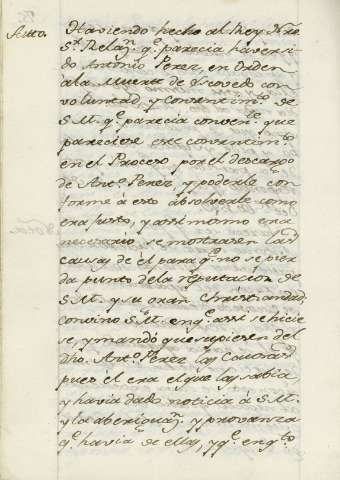 Auto.
Haviendo hecho al Rey Nro
Sr. Relazn. qe. parecia haver si-
do Antonio Perez, en Orden
á la Muerte de Escovedo con
voluntad, y consentimto. de
S. M. qe. parecia convente. que
pareciese este consentimto.
en el Proceso por el descargo
de Anto. Perez, y poderle con
forme á esto absolverle como
era justo, y assi mismo era
necesario se mostrasen las
causas de él para qe. no se pier
da punto de la reputacion de
S. M. y su gran Christiandad,
convino S. M. en qe. assi se hicie
se, y mandó que supiesen del
dho. Anto. Perez las Causas
pues él era el que las sabia,
y havia dado noticia á S. M.
y la aberiguazn. y provanza
qe. havia de ellas, y qe. en qto.